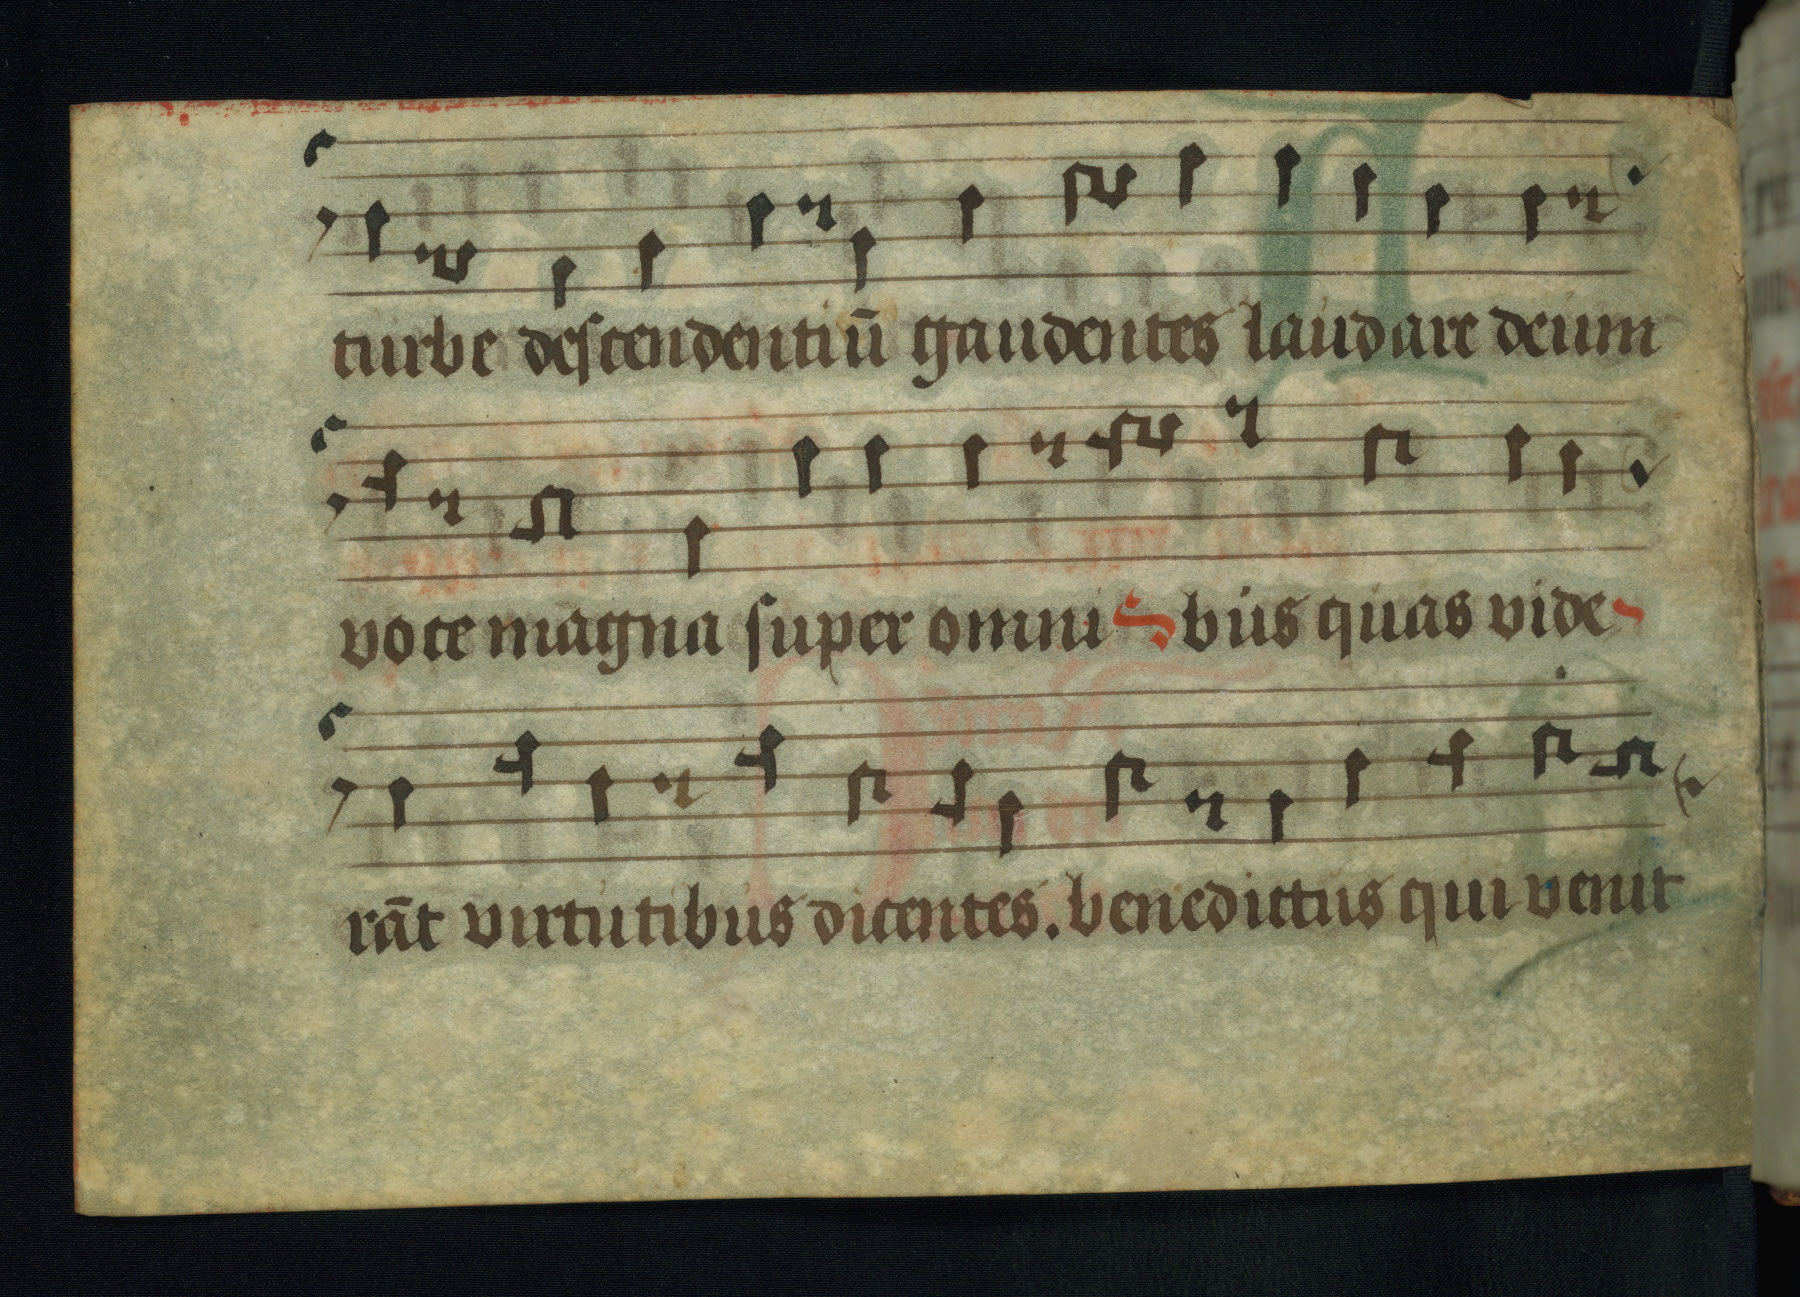 turbe descendentiū gaudentes laudare deum
voce magna super omni bus quas vide
rāt virtutibus dicentes. benedictus qui venit